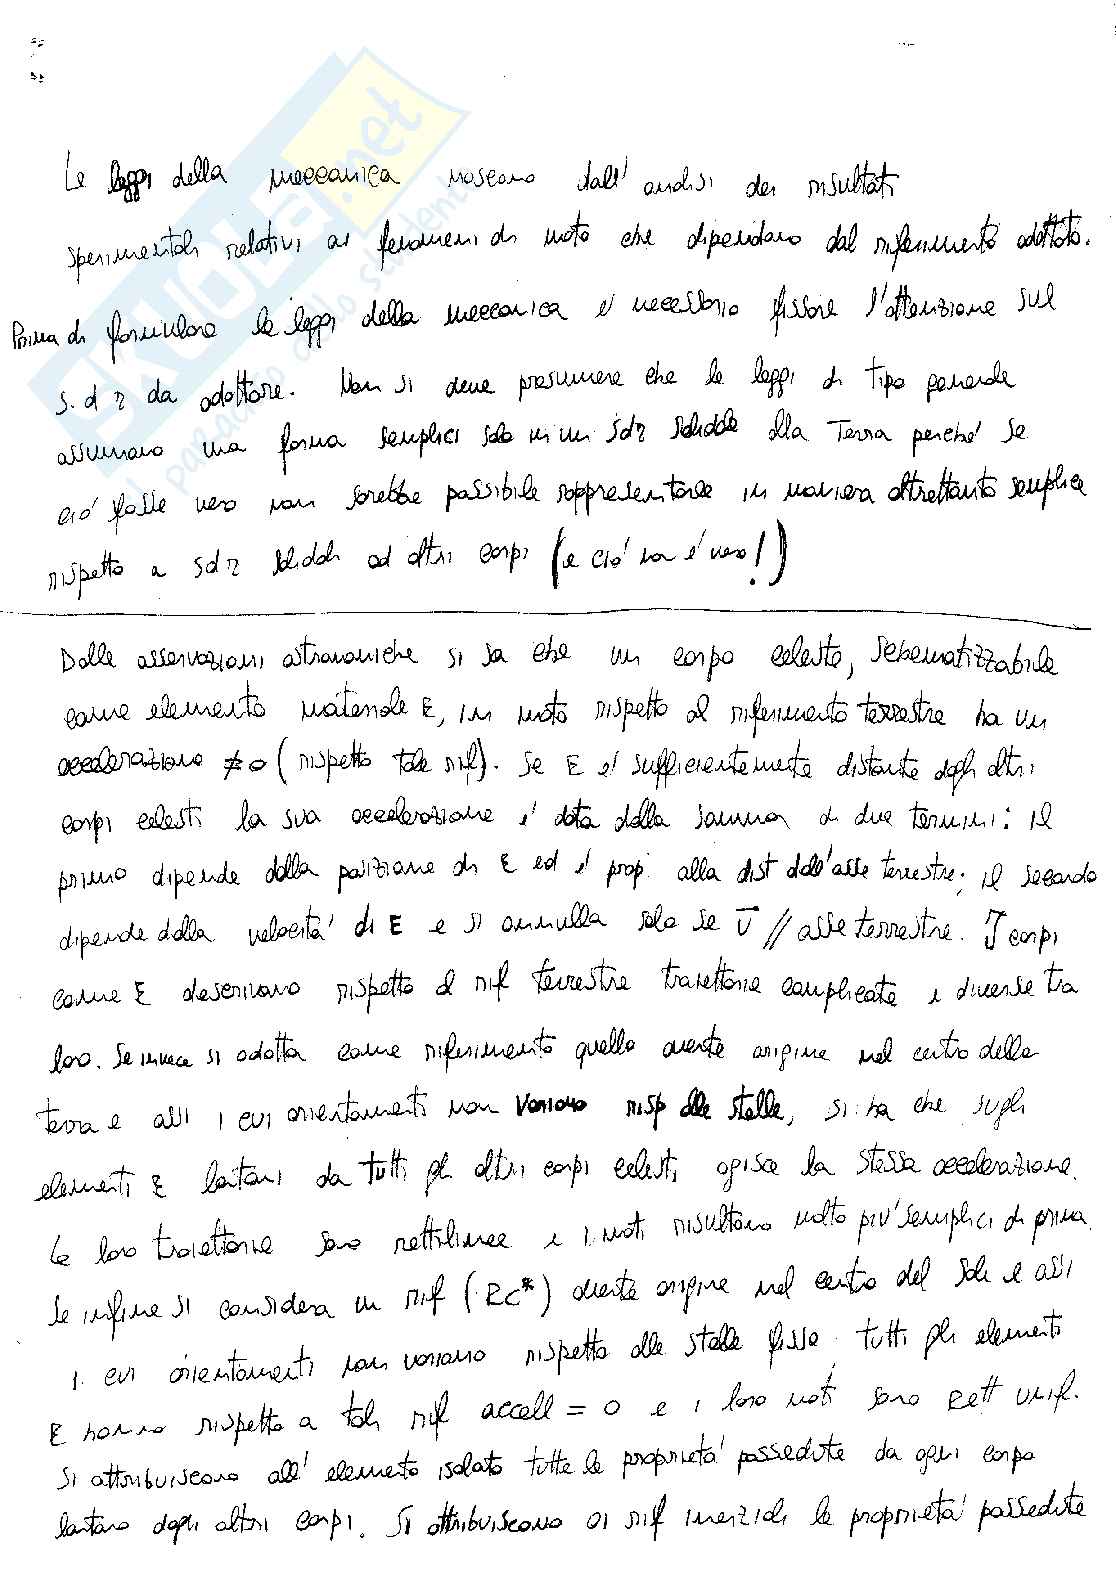 SKUOLA.net
Le leggi della meccanica nascono dall' analisi dei risultati
sperimentali relativi ai fenomeni di moto che dipendono dal riferimento adottato.
Prima di formulare le leggi della meccanica e' necessario fissare l'attenzione sul
s. d r da adottare. Non si deve presumere che le leggi di tipo generale
assumano una forma semplici solo in un sdr solidale alla Terra perche' se
cio' fosse vero non sarebbe possibile rappresentarle in maniera altrettanto semplice
rispetto a sdr solidali ad altri corpi (e cio' non e' vero!)
Dalle osservazioni astronomiche si sa che un corpo celeste, schematizzabile
come elemento materiale E, in moto rispetto al riferimento terrestre ha un
accelerazione ≠ 0 (rispetto tale rif). Se E e' sufficientemente distante dagli altri
corpi celesti la sua accelerazione e' data dalla somma di due termini: il
primo dipende dalla posizione di E ed e' prop. alla dist dall'asse terrestre; il secondo
dipende dalla velocita' di E e si annulla solo se v̄ // asse terrestre. I corpi
come E descrivono rispetto al rif terrestre traiettorie complicate e diverse tra
loro. Se invece si adotta come riferimento quello avente origine nel centro della
terra e assi i cui orientamenti non variano risp alle stelle, si ha che sugli
elementi E lontani da tutti gli altri corpi celesti agisce la stessa accelerazione.
Le loro traiettorie sono rettilinee e i moti risultano molto piu' semplici di prima.
Se infine si considera un rif (Rc*) avente origine nel centro del Sole e assi
i cui orientamenti non variano rispetto alle stelle fisse tutti gli elementi
E hanno rispetto a tali rif accell = 0 e i loro moti sono rett unif.
Si attribuiscono all' elemento isolato tutte le proprieta' possedute da ogni corpo
lontano dagli altri corpi. Si attribuiscono ai rif inerziali le proprieta' possedute